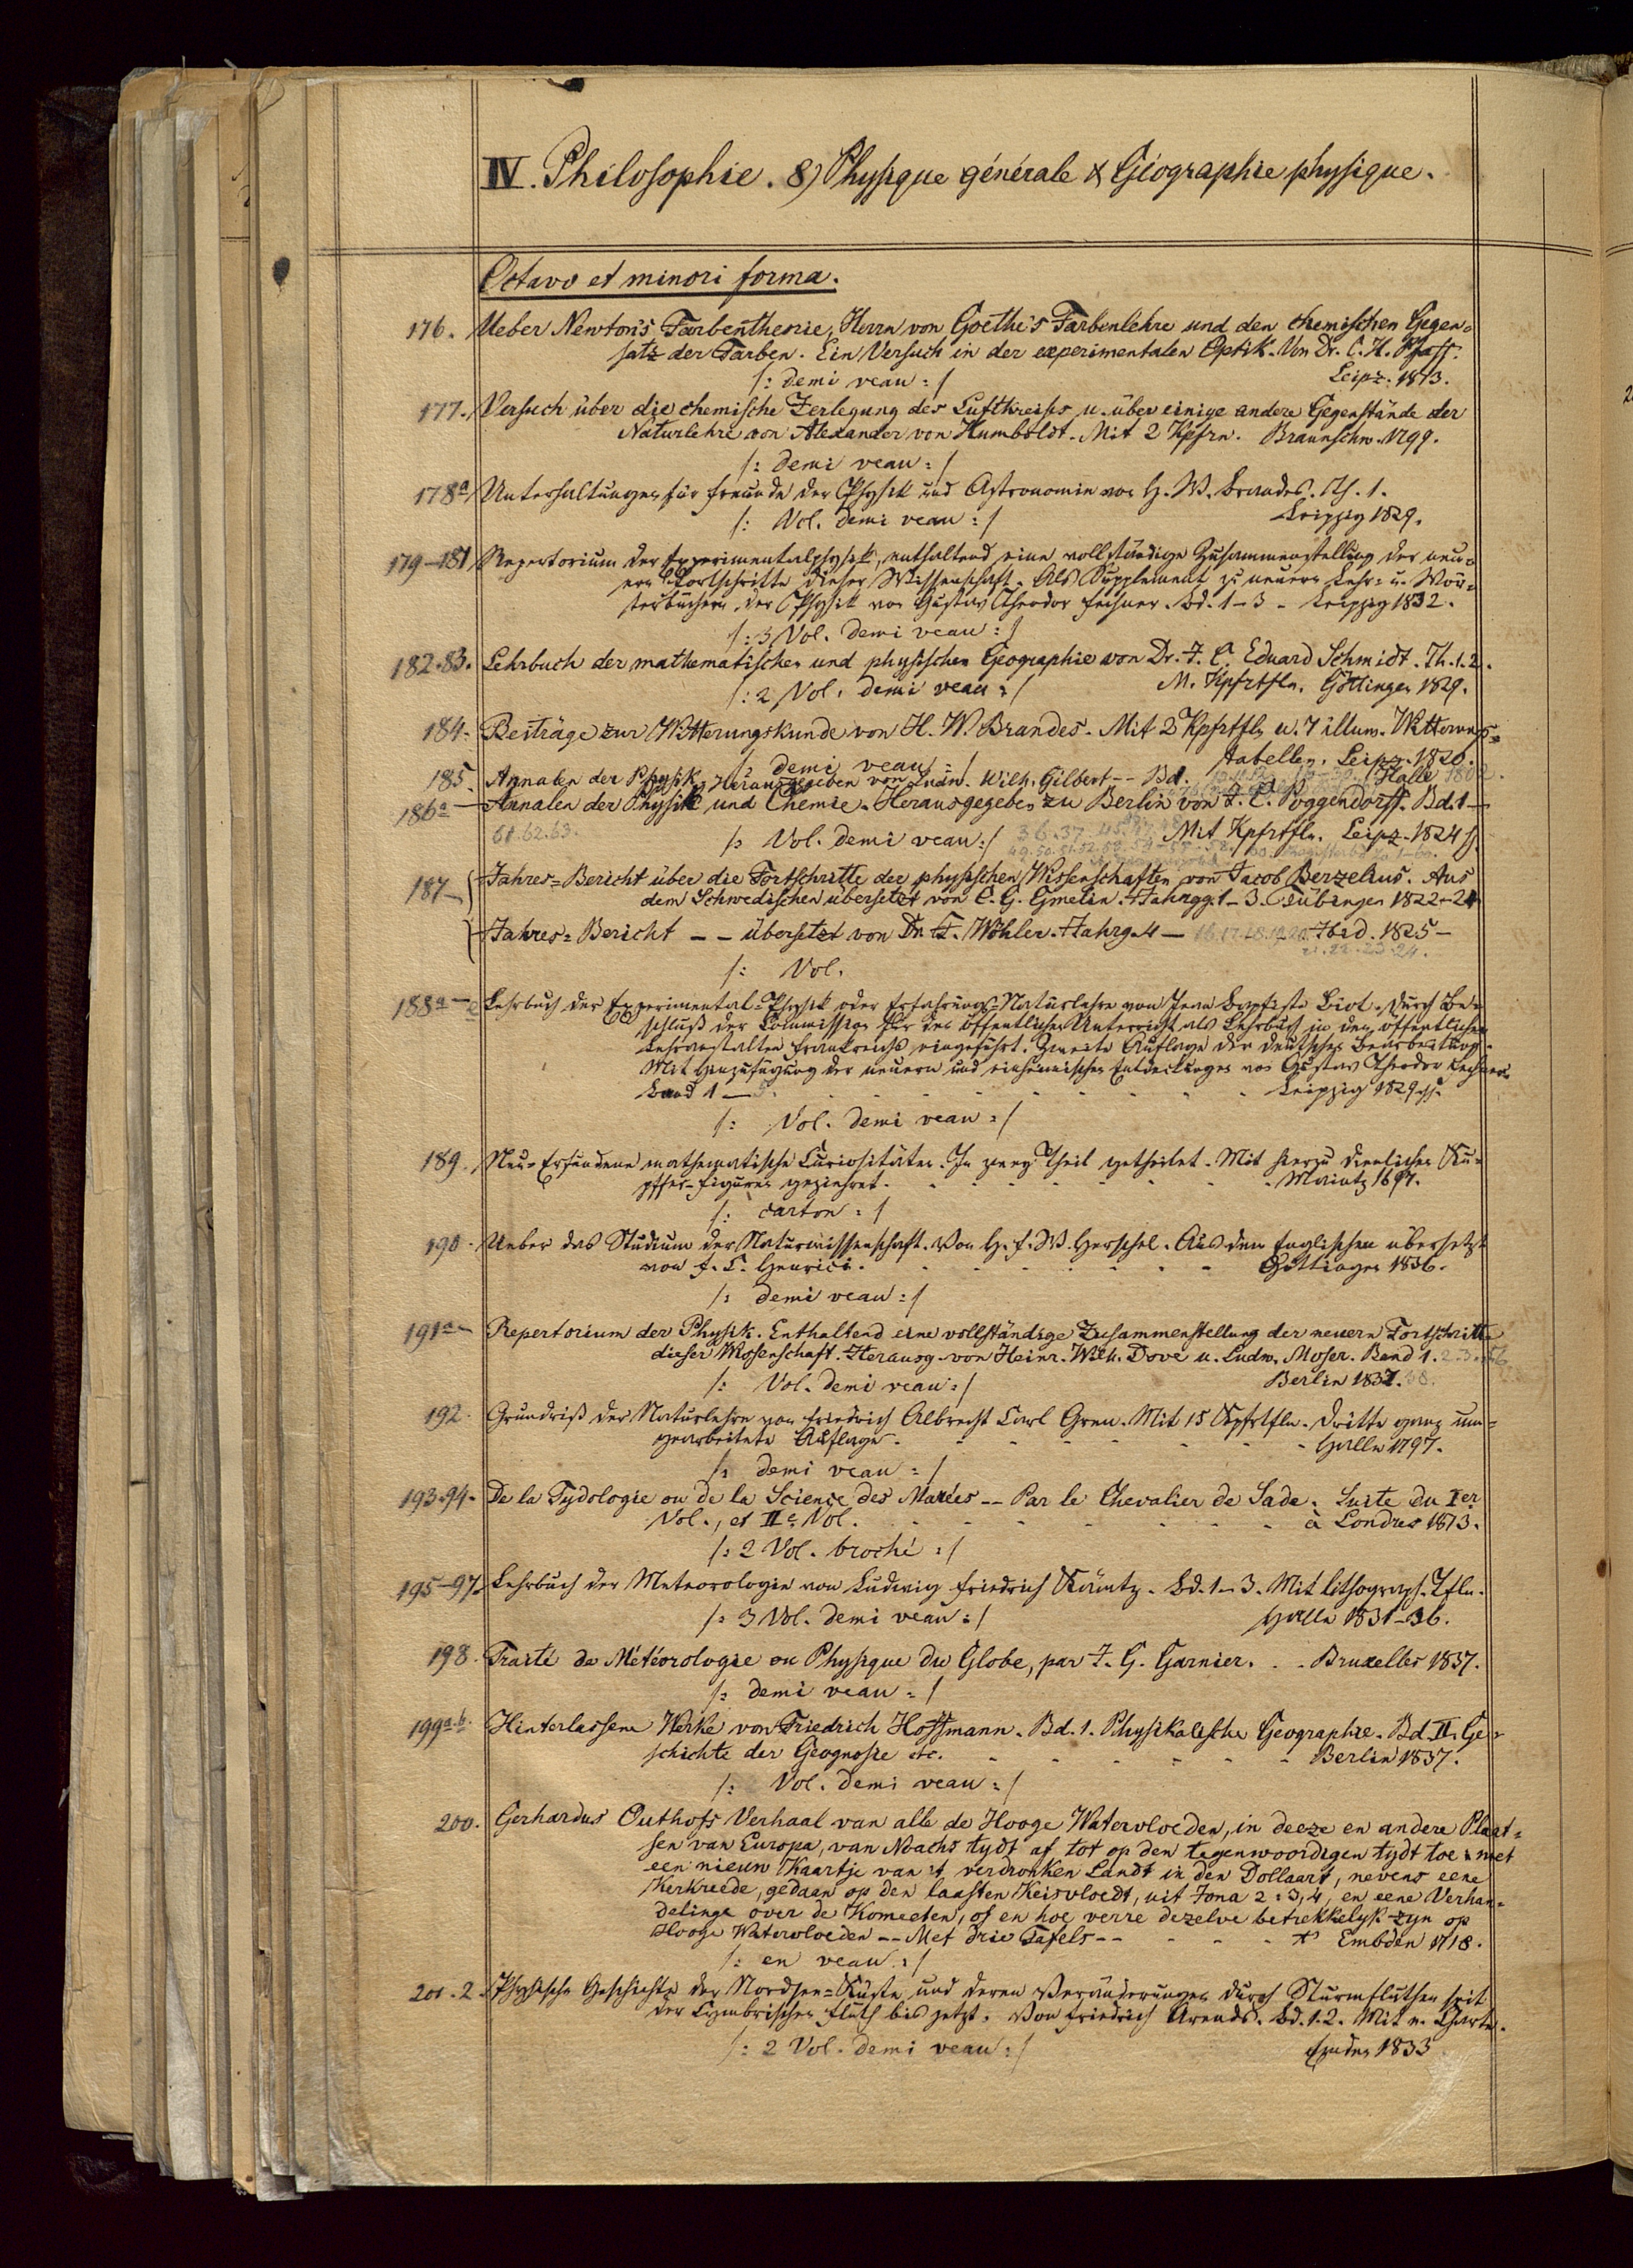 IV. Philosophie. 8) Physique générale & Géographie physique.
Octavo et minori forma.
176. Ueber Newton's Farbentheorie, Herrn von Goethe's Farbenlehre und den chemischen Gegen=
satz der Farben. Ein Versuch in der experimentalen Optik. Von Dr. C. H. Pfaff.
/: demi veau :/ Leipz. 1813.
177. Versuch über die chemische Zerlegung des Luftkreises u. über einige andere Gegenstände der
Naturlehre von Alexander von Humboldt. Mit 2 Kpfrn. Braunschw. 1799.
/: demi veau :/
178a Unterhaltungen für Freunde der Physik und Astronomie von H. W. Brandes. Th. 1.
/: Vol. demi veau :/ Leipzig 1829.
179-181 Repertorium der Experimentalphysik, enthaltend eine vollständige Zusammenstellung der neu=
ern Fortschritte dieser Wissenschaft. Als Supplement zu neuern Lehr= u. Wör=
terbüchern der Physik von Gustav Theodor Fechner. Bd. 1-3 - Leipzig 1832.
/: 3 Vol. demi veau :/
182.83. Lehrbuch der mathematischen und physischen Geographie von Dr. J. C. Eduard Schmidt. Th. 1. 2.
/: 2 Vol. demi veau :/ M. Kpfrtfln. Göttingen 1829.
184. Beiträge zur Witterungskunde von H. W. Brandes. Mit 2 Kpfrtfln u. 7 illum. Witterungs=
tabellen. Leipz. 1820.
/: demi veau :/
185. Annalen der Physik, Herausgegeben von Ludw. Wilh. Gilbert -- Bd. Halle 1802.
186a - Annalen der Physik und Chemie. Herausgegeben zu Berlin von J. C. Poggendorff. Bd. 1 -
61. 62. 63. /: Vol. demi veau :/ 36. 37. Mit Kpfrtfln. Leipz. 1824 ff.
49. 50. 51. 52.
187 - Jahres=Bericht über die Fortschritte der physischen Wissenschaften von Jacob Berzelius. Aus
dem Schwedischen übersetzt von C. G. Gmelin. Jahrgg. 1-3. Tübingen 1822-24
Jahres=Bericht -- übersetzt von Dr. F. Wöhler. Jahrg. 4 - 16. 17. 18. 19. 20. Ibid. 1825 -
21. 22. 23. 24.
/: Vol.
188a - e Lehrbuch der Experimental=Physik oder Erfahrungs=Naturlehre von Jean Baptiste Biot. Durch Be=
schluß der Commission für den öffentlichen Unterricht als Lehrbuch in den öffentlichen
Lehranstalten Frankreichs eingeführt. Zweite Auflage der deutschen Bearbeitung.
Mit Hinzufügung der neuern und einheimischen Entdeckungen von Gustav Theodor Fechner.
Band 1 - 5. Leipzig 1829 ff.
/: Vol. demi veau :/
189. Neu=Erfundene mathematische Curiositäten. In zwey Theil getheilet. Mit hierzu dienlichen Ku=
pffer=Figuren gezieret. Maintz 1697.
/: carton :/
190. Ueber das Studium der Naturwissenschaft. Von H. J. F. W. Herschel. Aus dem Englischen übersetzt
von F. C. Henrici. Göttingen 1836.
/: demi veau :/
191a - Repertorium der Physik. Enthaltend eine vollständige Zusammenstellung der neuern Fortschritte
dieser Wissenschaft. Herausg. von Heinr. Wilh. Dove u. Ludw. Moser. Band 1. 2. 3.
/: Vol. demi veau :/ Berlin 1837. 38.
192. Grundriß der Naturlehre von Friedrich Albrecht Carl Gren. Mit 15 Kpfrtfln. Dritte ganz um=
gearbeitete Auflage. Halle 1797.
/: demi veau :/
193.94. De la Tydologie ou de la Science des Marées -- Par le Chevalier de Sade. Suite du Ier
Vol., et IIe Vol. à Londres 1813.
/: 2 Vol. broché :/
195-97. Lehrbuch der Meteorologie von Ludwig Friedrich Kämtz. Bd. 1-3. Mit lithograph. Tfln.
/: 3 Vol. demi veau :/ Halle 1831-36.
198. Traité de Météorologie ou Physique du Globe, par J. G. Garnier. Bruxelles 1837.
/: demi veau :/
199a.b. Hinterlassene Werke von Friedrich Hoffmann. Bd. 1. Physikalische Geographie. Bd. II. Ge=
schichte der Geognosie etc. Berlin 1837.
/: Vol. demi veau :/
200. Gerhardus Outhofs Verhaal van alle de Hooge Watervloeden, in deeze en andere Plaat=
sen van Europa, van Noachs tydt af tot op den tegenwoordigen tydt toe: met
een nieuw Kaartje van 't verdronken Landt in den Dollaart, nevens eene
Kerkreede, gedaan op den laasten Keisvloedt, uit Jona 2:3,4, en eene Verhan=
delinge over de Komeeten, of en hoe verre dezelve betrekkelyk zyn op
Hooge Watervloeden -- Met drie Tafels -- t' Embden 1718.
/: en veau :/
201.2. Physische Geschichte der Nordsee=Küste und deren Veränderungen durch Sturmfluthen seit
der Cymbrischen Fluth bis jetzt. Von Friedrich Arends. Bd. 1. 2. Mit e. Charte.
/: 2 Vol. demi veau :/ Emden 1833